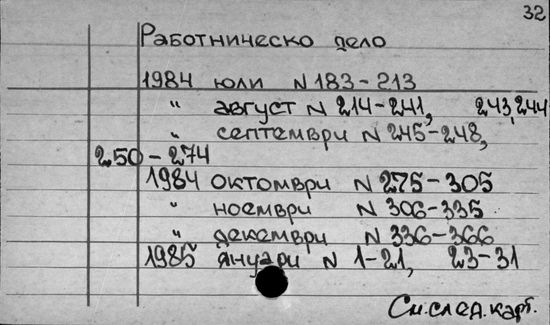 32
Работническо дело
1984 юли N 183-213
" август N 214-241, 243,244
" септември N 245-248,
250-274
1984 октомври N 275-305
" ноември N 306-335
" декември N 336-366
1985 януари N 1-21, 23-31
См.след.карт.